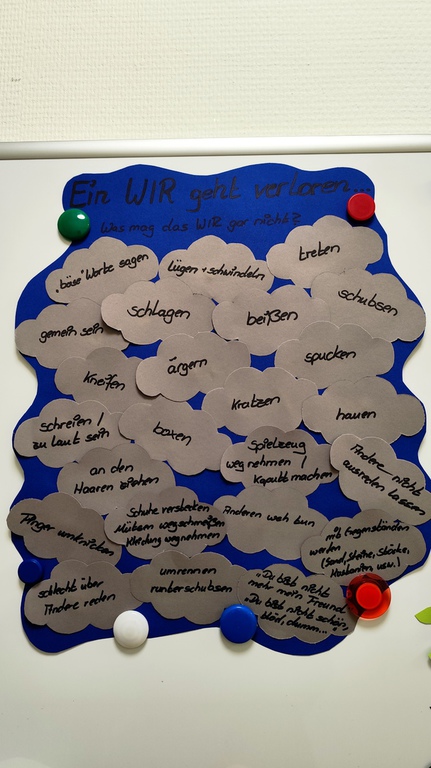 Ein WIR geht verloren...
Was mag das WIR gar nicht?
"böse" Worte sagen
lügen + schwindeln
treten
gemein sein
schlagen
beißen
schubsen
kneifen
ärgern
spucken
schreien /
zu laut sein
boxen
kratzen
hauen
an den
Haaren ziehen
Spielzeug
wegnehmen /
kaputt machen
Andere nicht
ausreden lassen
Finger umknicken
Schuhe verstecken
Mützen wegschmeißen
Kleidung wegnehmen
Anderen weh tun
mit Gegenständen
werfen
(Sand, Steine, Stöcke,
Kastanien usw.)
schlecht über
Andere reden
umrennen
runterschubsen
"Du bist nicht
mehr mein Freund
"Du bist nicht schön,
blöd, dumm..."